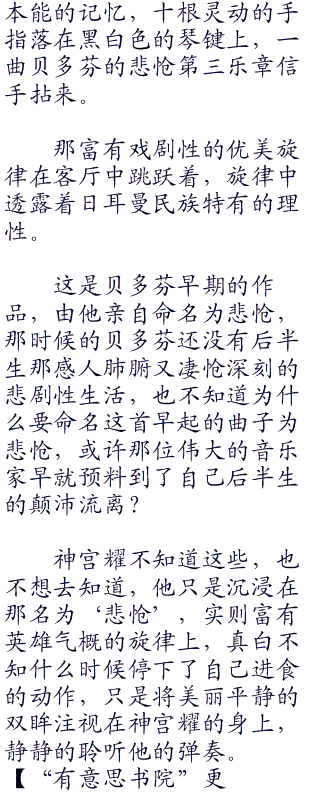 本能的记忆，十根灵动的手
指落在黑白色的琴键上，一
曲贝多芬的悲怆第三乐章信
手拈来。
那富有戏剧性的优美旋
律在客厅中跳跃着，旋律中
透露着日耳曼民族特有的理
性。
这是贝多芬早期的作
品，由他亲自命名为悲怆，
那时候的贝多芬还没有后半
生那感人肺腑又凄怆深刻的
悲剧性生活，也不知道为什
么要命名这首早起的曲子为
悲怆，或许那位伟大的音乐
家早就预料到了自己后半生
的颠沛流离？
神宫耀不知道这些，也
不想去知道，他只是沉浸在
那名为‘悲怆’，实则富有
英雄气概的旋律上，真白不
知什么时候停下了自己进食
的动作，只是将美丽平静的
双眸注视在神宫耀的身上，
静静的聆听他的弹奏。
【“有意思书院”更